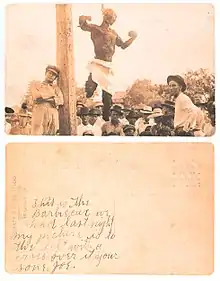 This is the
Barbecue we
had last night
my picture is to
the left with a
cross over it your
son, Joe.